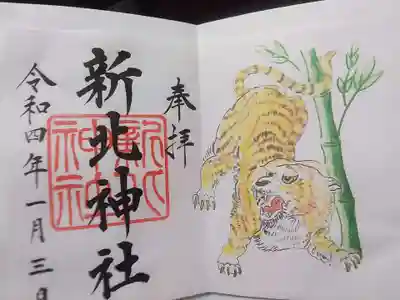 奉拝
新北神社
新北
神社
令和四年一月三日